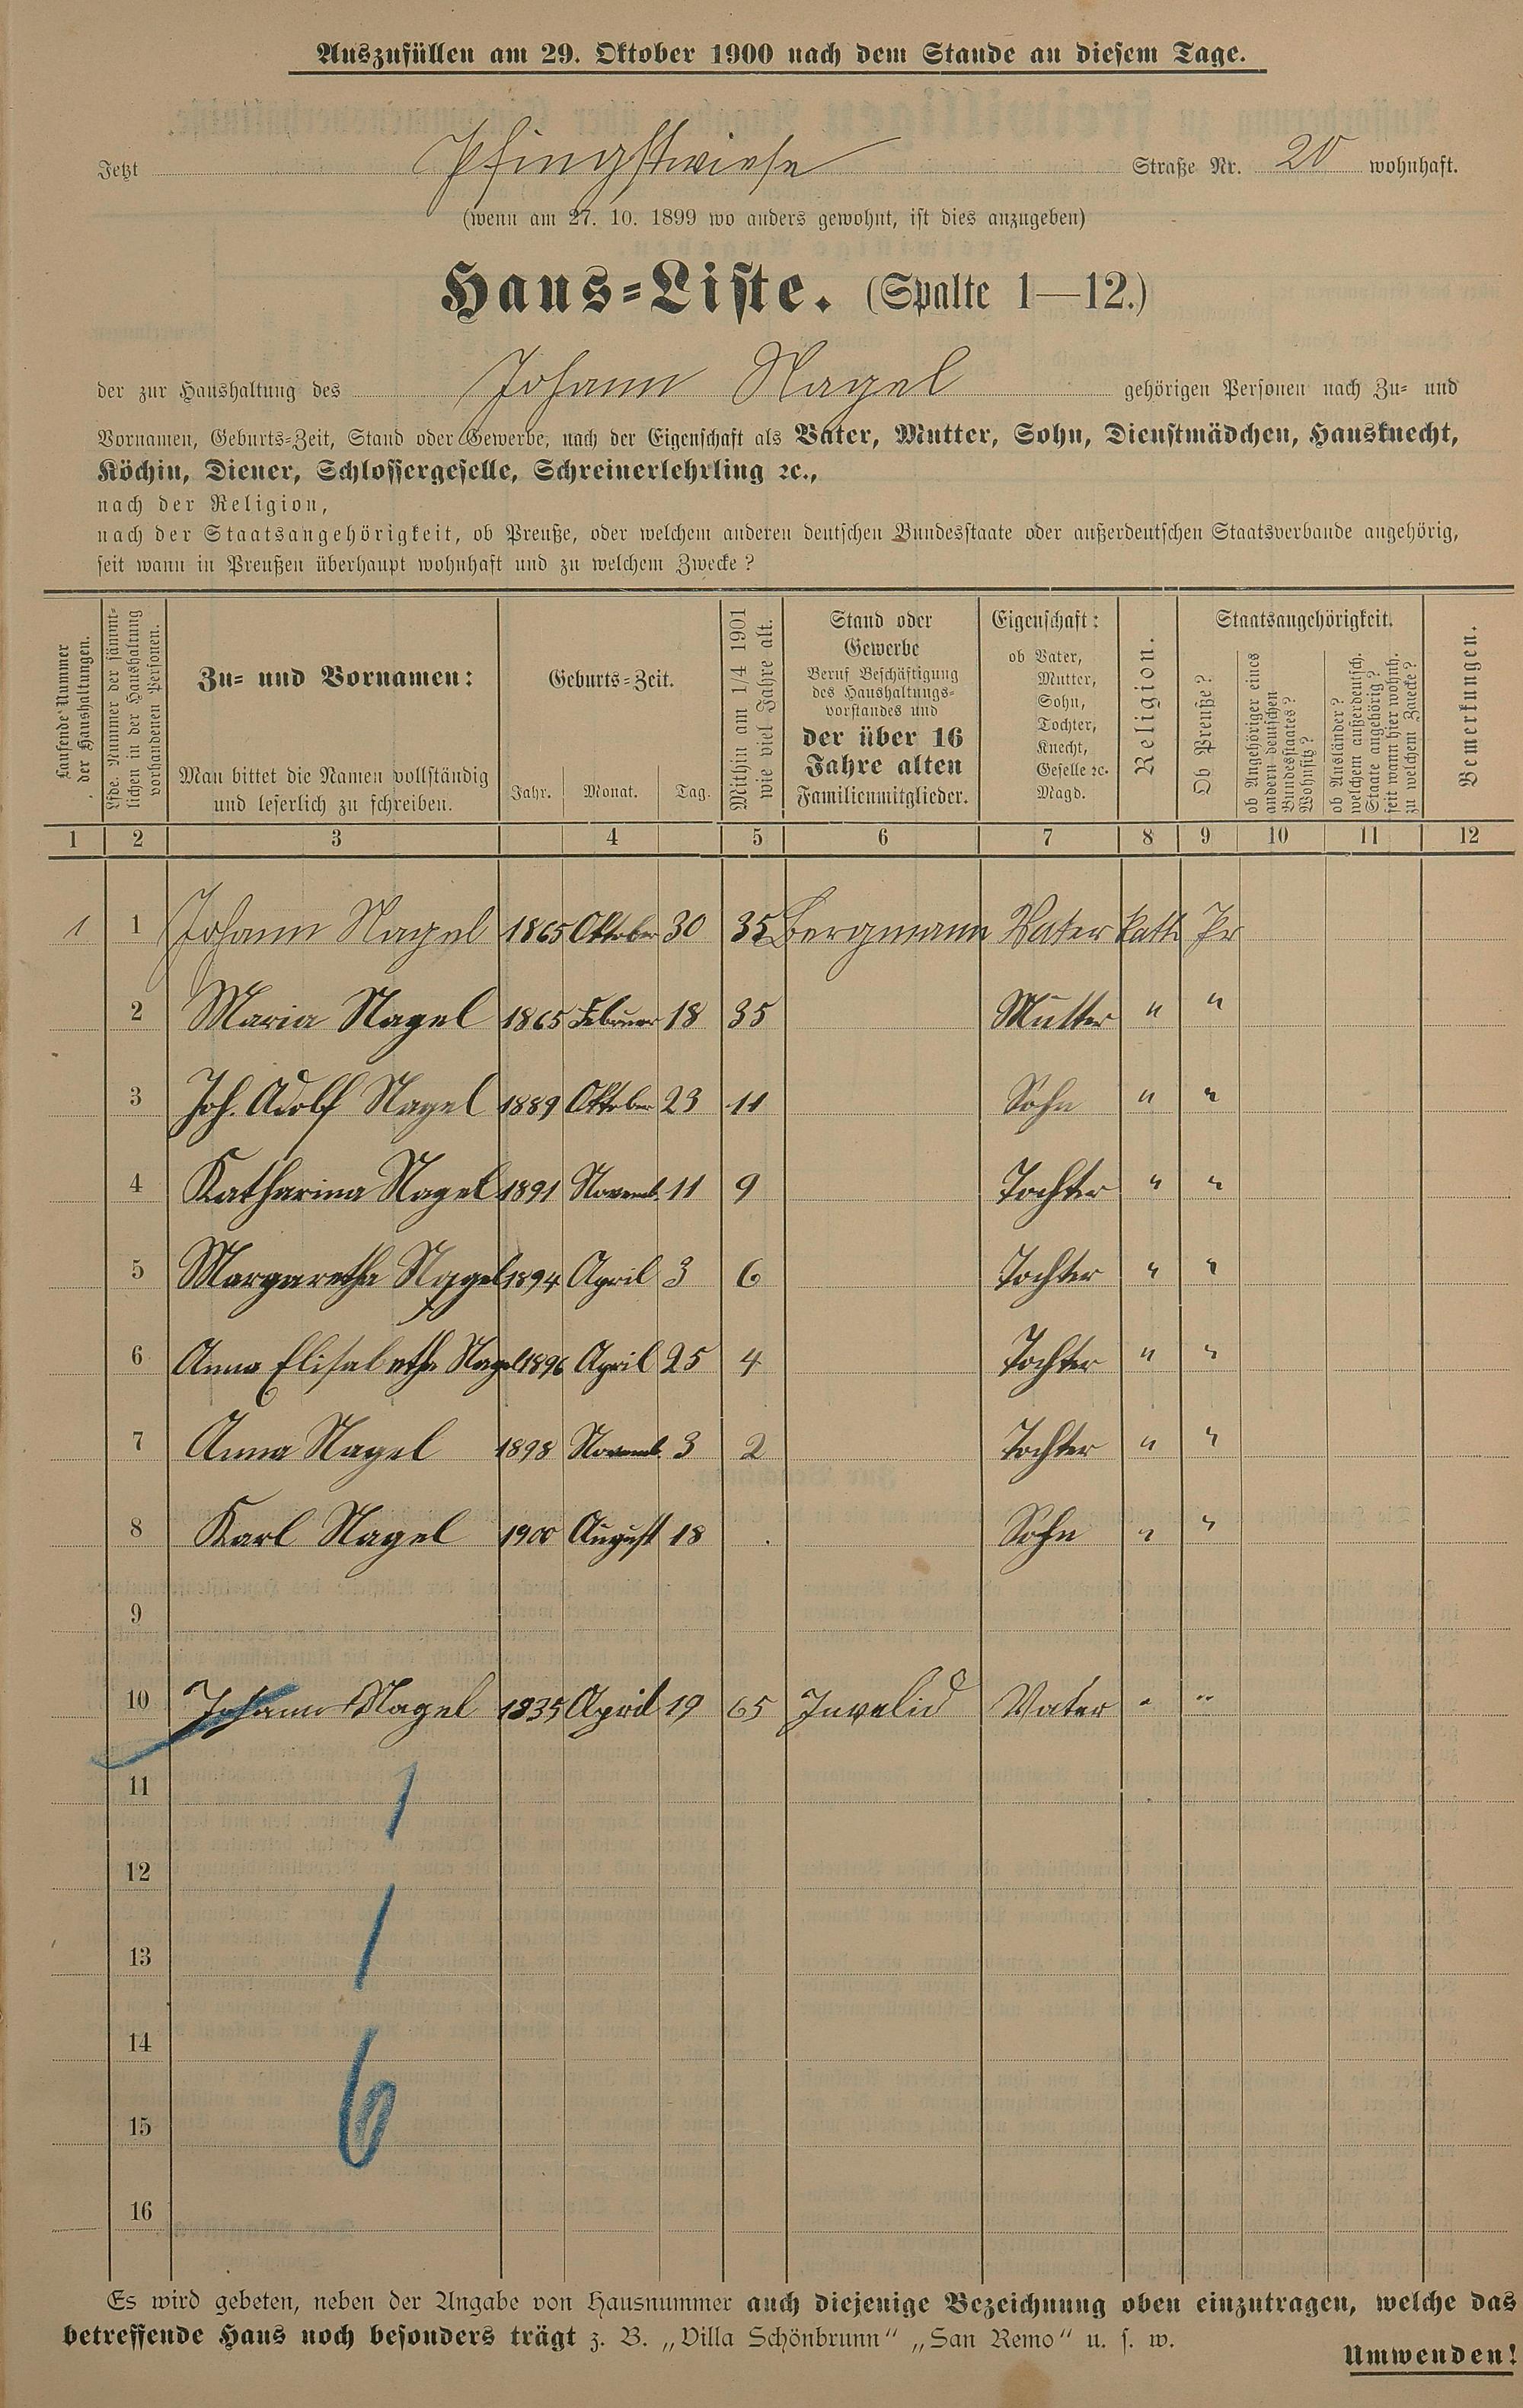 Auszufüllen am 29. Oktober 1900 nach dem Stande an diesem Tage.
Jetzt Pfingstwiese Straße Nr. 20 wohnhaft.
(wenn am 27. 10. 1899 wo anders gewohnt, ist dies anzugeben)
Haus-Liste. (Spalte 1—12.)
der zur Haushaltung des Johann Nagel gehörigen Personen nach Zu- und
Vornamen, Geburts-Zeit, Stand oder Gewerbe, nach der Eigenschaft als Vater, Mutter, Sohn, Dienstmädchen, Hausknecht,
Köchin, Diener, Schlossergeselle, Schreinerlehrling ꝛc.,
nach der Religion,
nach der Staatsangehörigkeit, ob Preuße, oder welchem anderen deutschen Bundesstaate oder außerdeutschen Staatsverbande angehörig,
seit wann in Preußen überhaupt wohnhaft und zu welchem Zwecke?
Laufende Nummer
der Haushaltungen.
Lfde. Nummer der sämmt-
lichen in der Haushaltung
vorhandenen Personen.
Zu- und Vornamen:
Man bittet die Namen vollständig
und leserlich zu schreiben.
Geburts-Zeit.
Jahr. Monat. Tag.
Mithin am 1/4 1901
wie viel Jahre alt.
Stand oder
Gewerbe
Beruf Beschäftigung
des Haushaltungs-
vorstandes und
der über 16
Jahre alten
Familienmitglieder.
Eigenschaft:
ob Vater,
Mutter,
Sohn,
Tochter,
Knecht,
Geselle ꝛc.
Magd.
Religion.
Staatsangehörigkeit.
Ob Preuße?
ob Angehöriger eines
andern deutschen
Bundesstaates?
Wohnsitz?
ob Ausländer?
welchem außerdeutsch.
Staate angehörig?
seit wann hier wohnh.
zu welchem Zwecke?
Bemerkungen.
1 2 3 4 5 6 7 8 9 10 11 12
1 1 Johann Nagel 1865 Oktober 30 35 Bergmann Vater kath Pr
2 Maria Nagel 1865 Februar 18 35 Mutter " "
3 Joh. Adolf Nagel 1889 Oktober 23 11 Sohn " "
4 Katharina Nagel 1891 Novemb. 11 9 Tochter " "
5 Margaretha Nagel 1894 April 3 6 Tochter " "
6 Anna Elisabetha Nagel 1896 April 25 4 Tochter " "
7 Anna Nagel 1898 Novemb. 3 2 Tochter " "
8 Karl Nagel 1900 August 18 . Sohn " "
9
10 Johann Nagel 1835 April 19 65 Invalid Vater " "
11 1
12
13 1
14
15 6
16
Es wird gebeten, neben der Angabe von Hausnummer auch diejenige Bezeichnung oben einzutragen, welche das
betreffende Haus noch besonders trägt z. B. „Villa Schönbrunn" „San Remo" u. s. w.
Umwenden!